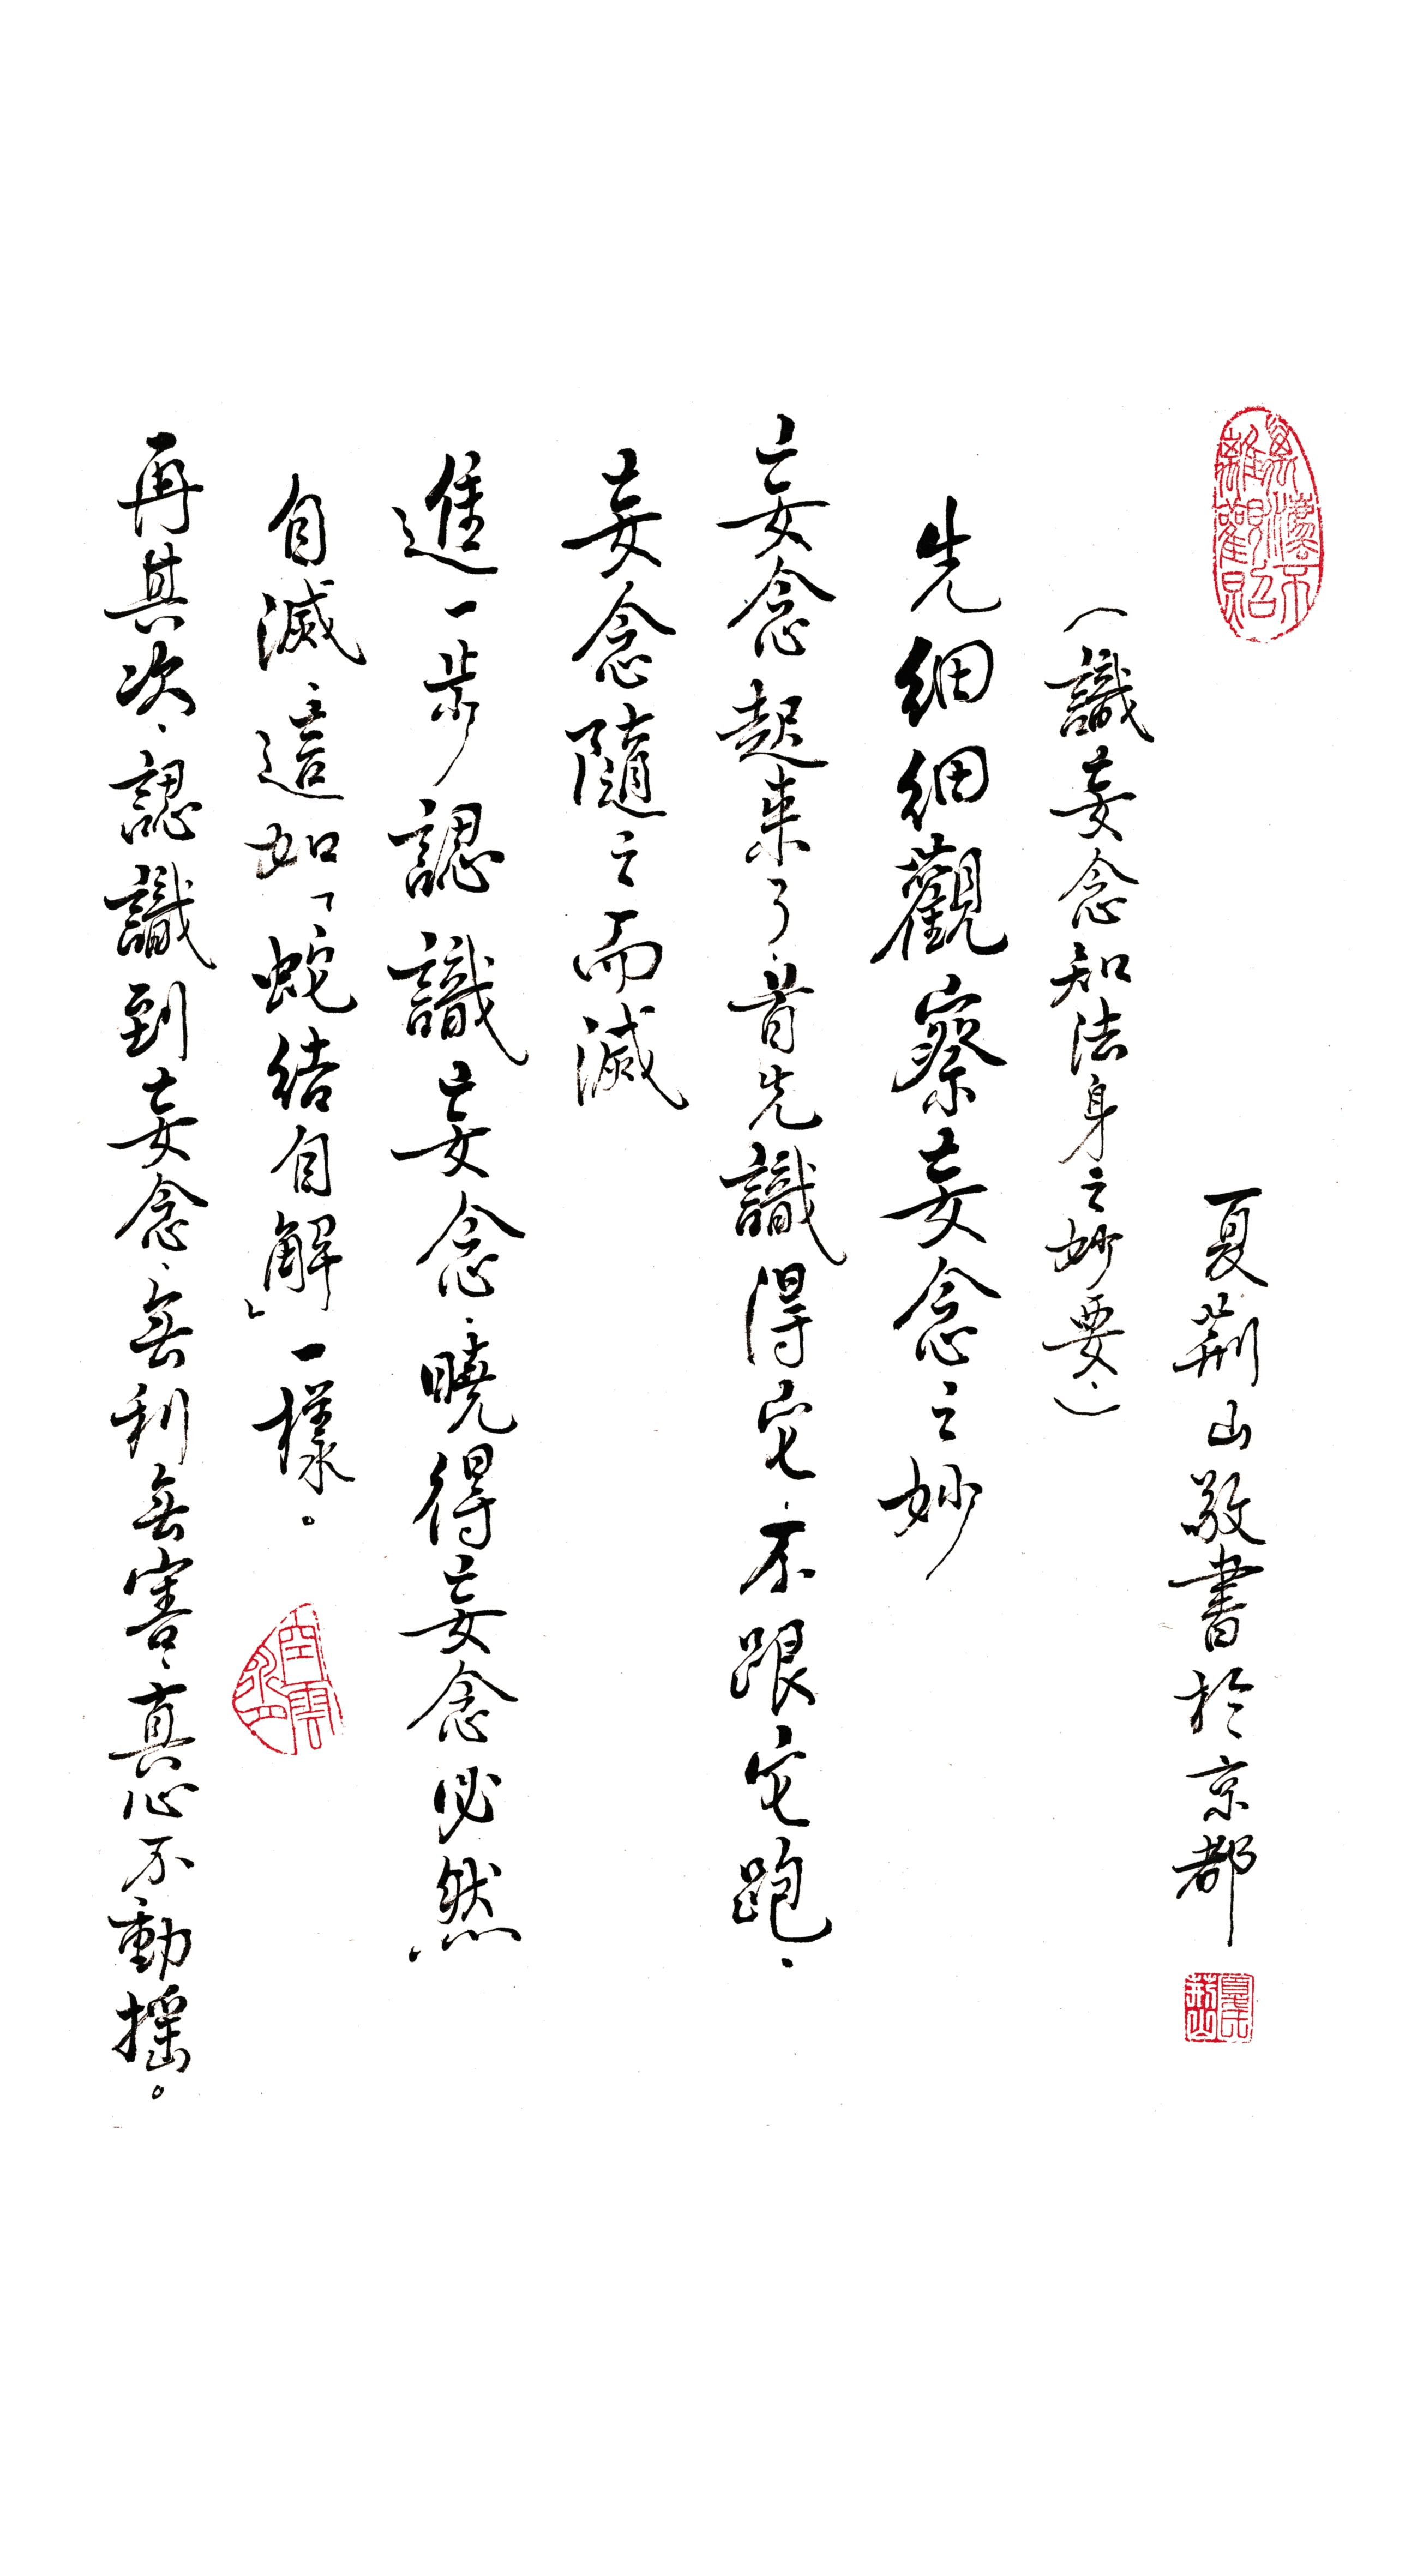 夏荊山敬書於京都
(識妄念知法身之妙要、)
先細細觀察妄念之妙
妄念起来了、首先識得它、不跟它跑、
妄念隨之而滅
進一步認識妄念、曉得妄念必然
自滅、這如「蛇結自解」一樣。
再其次、認識到妄念、無利無害、真心不動搖。
夏荊山